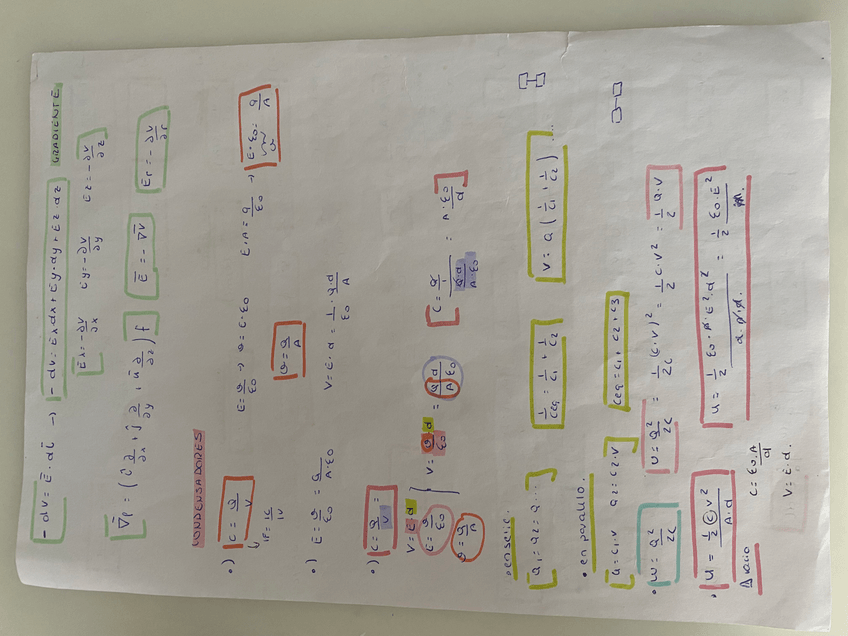 - dV = Ē · dl̄ → - dV = Ex dx + Ey · dy + Ez dz GRADIENTE
Ex = - ∂V/∂x Ey = - ∂V/∂y Ez = - ∂V/∂z
∇̄f = (î ∂/∂x + ĵ ∂/∂y + û ∂/∂z) f Ē = - ∇̄V Er = - ∂V/∂r
CONDENSADORES
•) C = Q/V E = σ/ε0 → σ = E · ε0 E · A = Q/ε0 → E · ε0 = Q/A
1F = 1C/1V σ = Q/A σ
•) E = σ/ε0 = Q/(A · ε0) V = E · d = 1/ε0 · Q · d/A
•) C = Q/V =
V = E · d V = σ · d/ε0 = Q d/(A ε0) C = Q/(Q · d/(A · ε0)) = A · ε0/d
E = σ/ε0
σ = Q/A
• en serie.
Q1 = Q2 = Q... 1/Ceq = 1/C1 + 1/C2 V = Q (1/C1 + 1/C2) ...
• en paralelo.
Q = C1 · V Q2 = C2 · V Ceq = C1 + C2 + C3
• W = Q²/2C U = Q²/2C = 1/2C (C · V)² = 1/2 C · V² = 1/2 Q · V
• U = 1/2 C V²/(A · d) U = 1/2 ε0 · A · E² · d²/(d · A · d) = 1/2 ε0 · E²
C = ε0 · A/d
V = E · d.